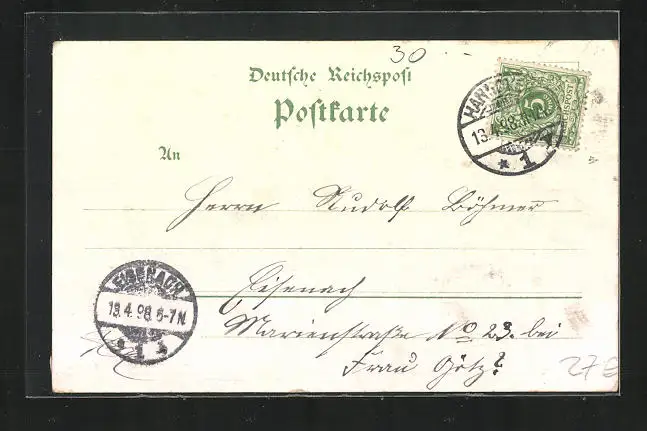 30
Deutsche Reichspost
Postkarte
An
HANNOVER
13.4.98.
* 1
5
REICHSPOST
Herrn Rudolf Böhmer
EISENACH
13.4.98.6-7N
* 1 *
Eisenach
Marienstraße No 23. bei
Frau Götz
27€